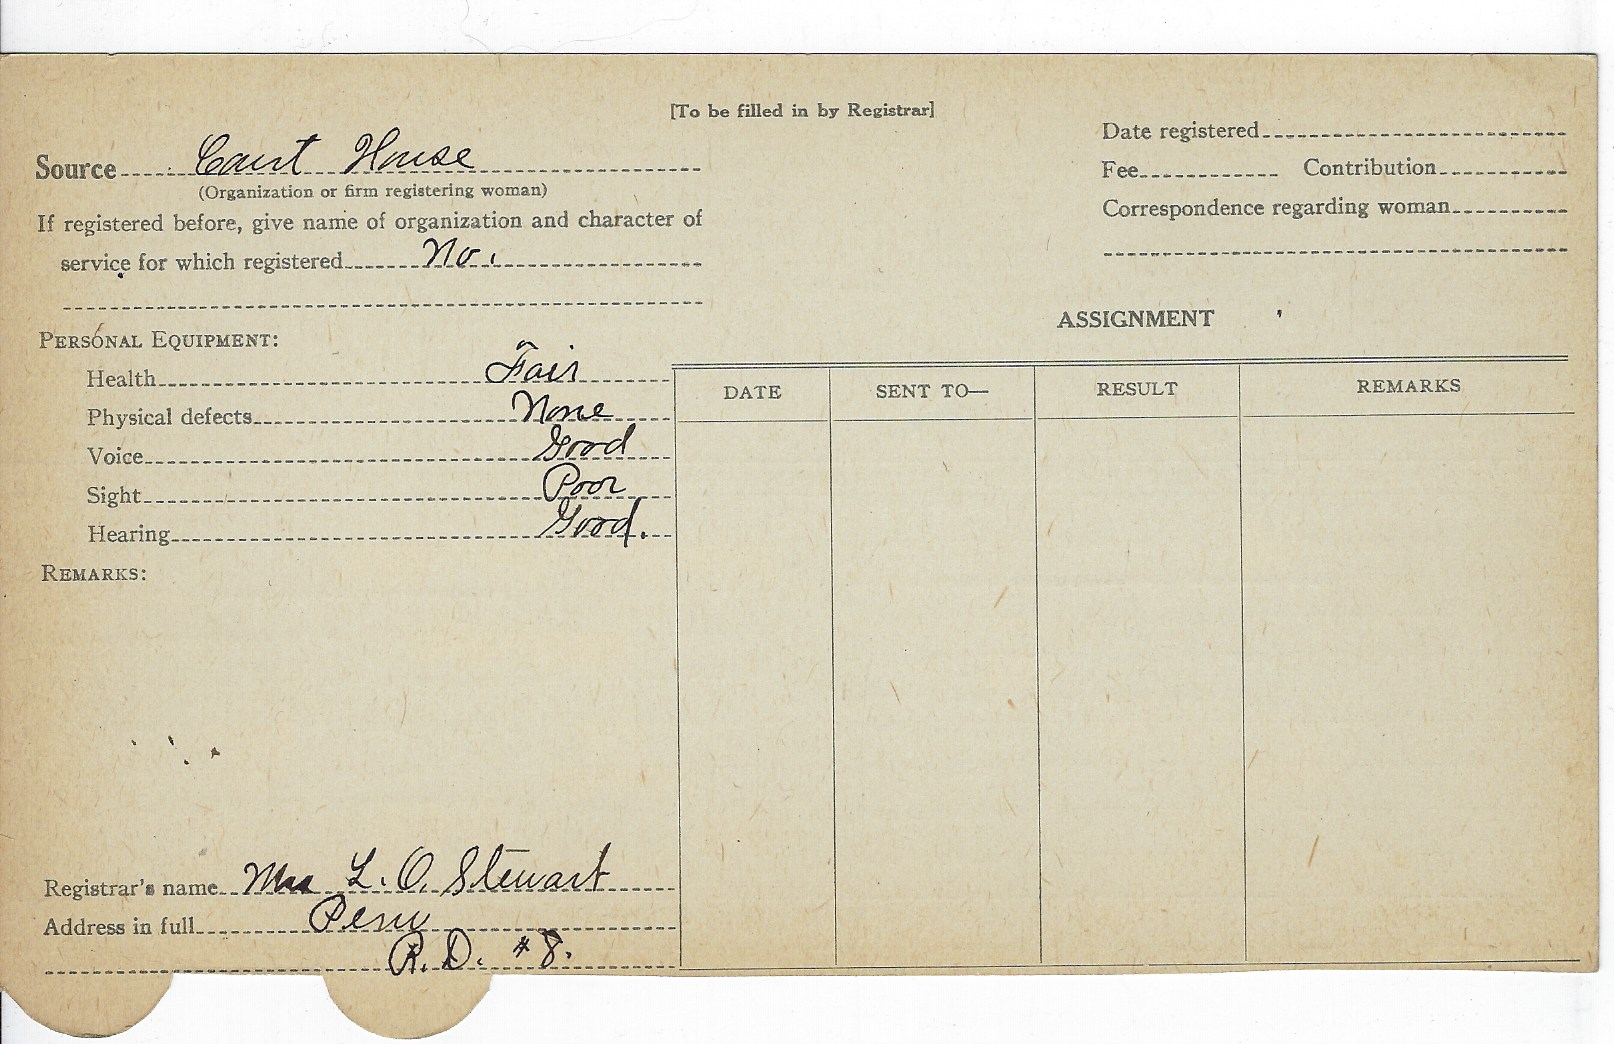 [To be filled in by Registrar]
Source Court House
(Organization or firm registering woman)
If registered before, give name of organization and character of
service for which registered No.
PERSONAL EQUIPMENT:
Health Fair
Physical defects None
Voice Good
Sight Poor
Hearing Good.
REMARKS:
Registrar's name Mrs L. O. Stewart
Address in full Peru
R. D. #8.
Date registered
Fee Contribution
Correspondence regarding woman
ASSIGNMENT
DATE SENT TO— RESULT REMARKS